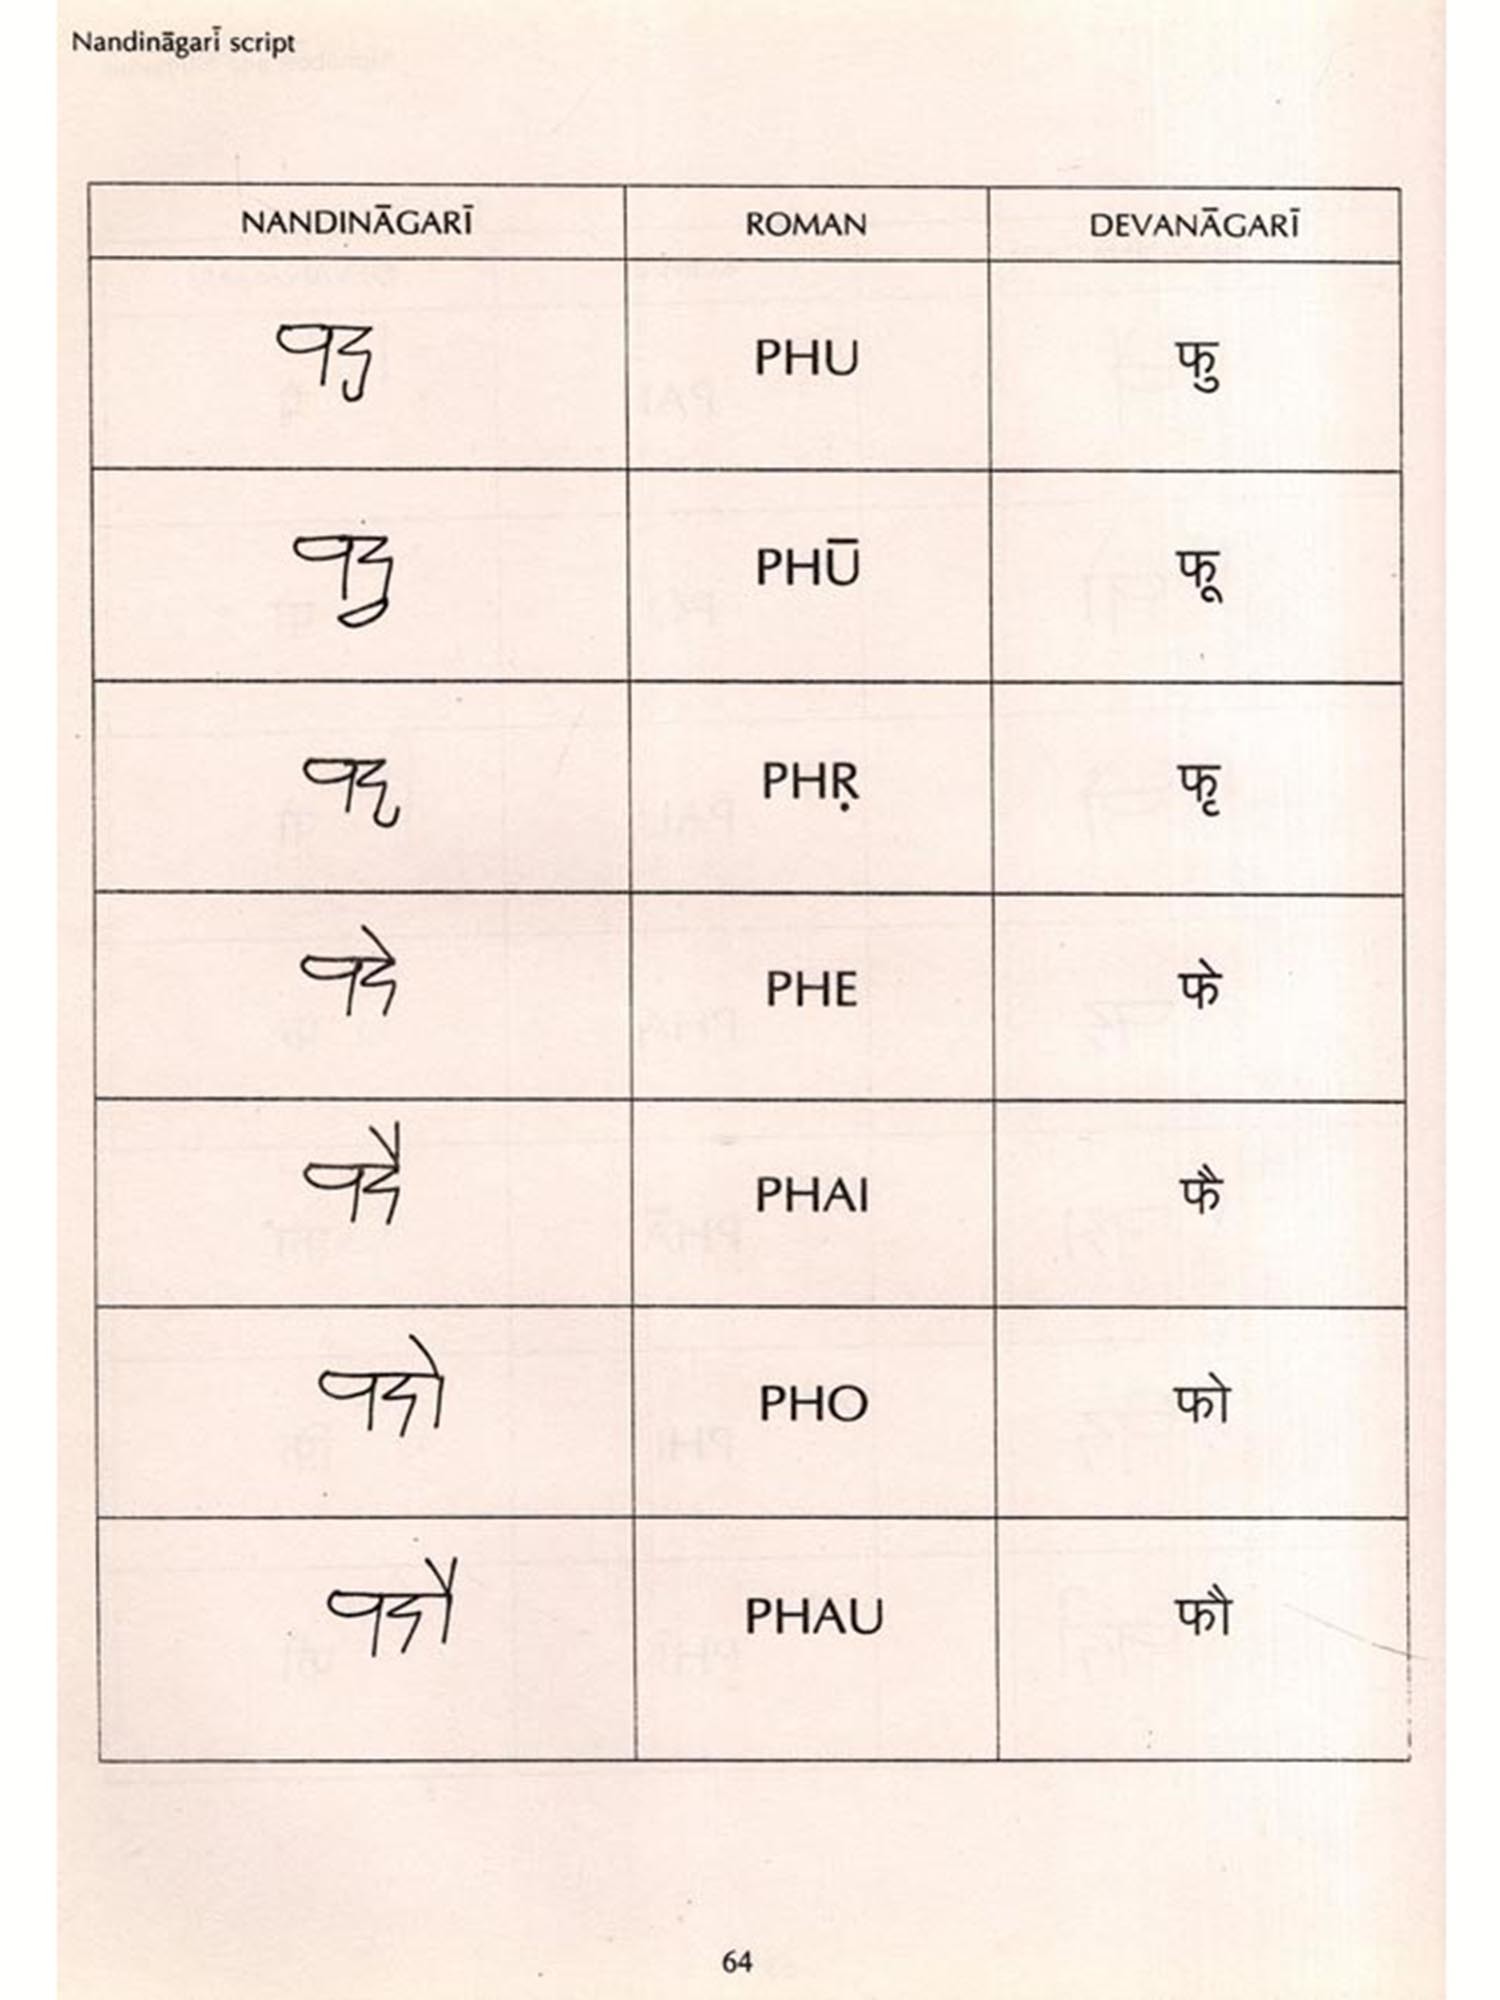 Nandināgarī script
NANDINĀGARĪ ROMAN DEVANĀGARĪ
PHU फु
PHŪ फू
PHṚ फृ
PHE फे
PHAI फै
PHO फो
PHAU फौ
64